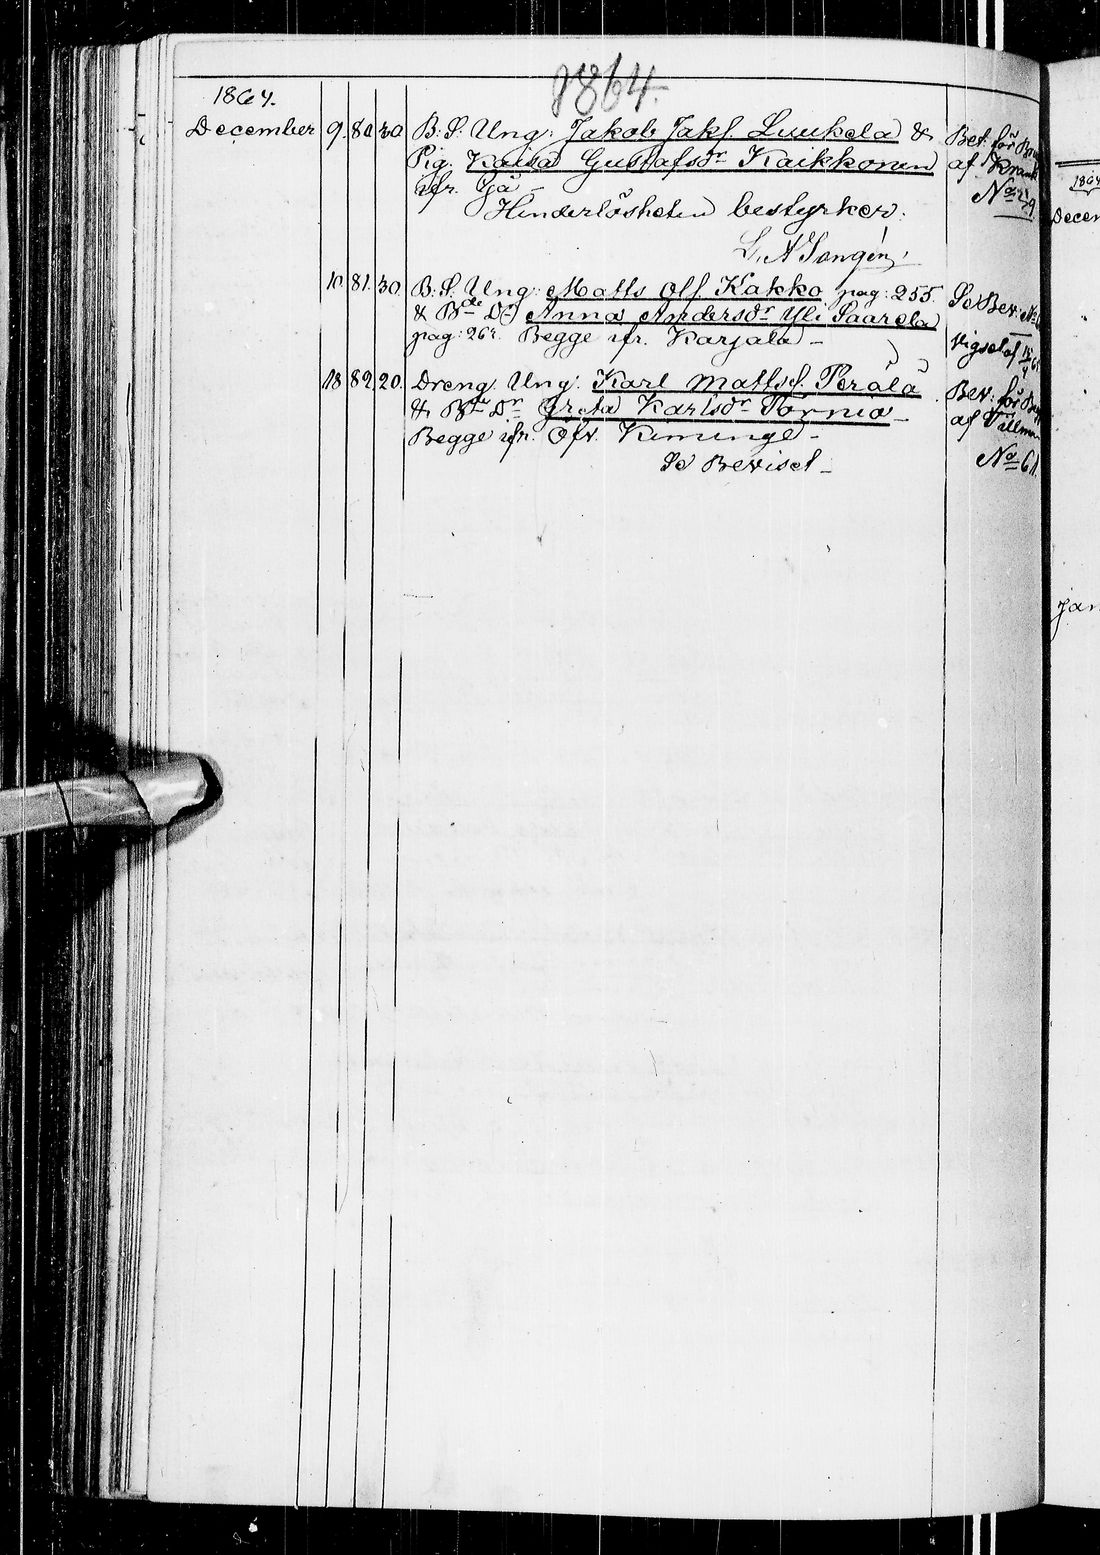 1864.
1864.
December 9. 80 30. B. S. Ung: Jakob Jaks. Luukela &
Pig. Kaisa Gustafsdr Kaikkonen
ifr. Ijå –
Hinderlösheten bestyrker.
L. A
Bet. för
af
No 29
10. 81. 30. B. S. Ung: Matts Olf Kakko pag: 255.
& Bde Dr Anna Andersdr Yli Saarela
pag: 267. Begge ifr. Karjala –
Se Bev:
18 82. 20. Dreng Ung. Karl Mattsf. Perälä
& Bde Dr Greta Karlsdr Törmä –
Begge ifr. Öfv. Kiminge –
Se Beviset –
Bev: för
af
No 61.
1864
Decem
Jan